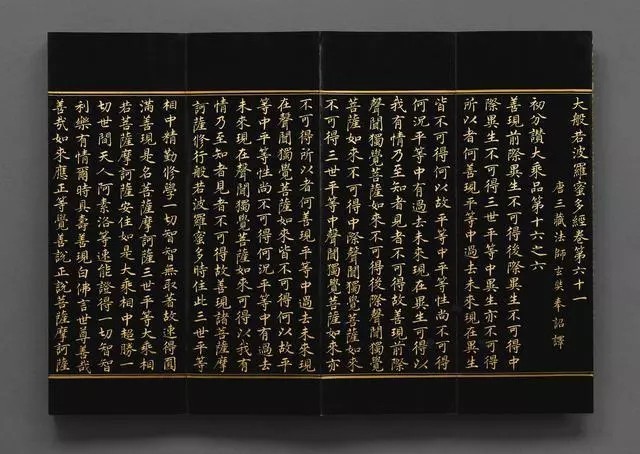 大般若波羅蜜多經卷第六十一
唐三藏法師玄奘奉 詔譯
初分讚大乘品第十六之六
善現前際異生不可得後際異生不可得中
際異生不可得三世平等中異生亦不可得
所以者何善現平等中過去未來現在異生
皆不可得何以故平等中平等性尚不可得
何況平等中有過去未來現在異生可得以
我有情乃至知者見者不可得故善現前際
聲聞獨覺菩薩如來不可得後際聲聞獨覺
菩薩如來不可得中際聲聞獨覺菩薩如來
不可得三世平等中聲聞獨覺菩薩如來亦
不可得所以者何善現平等中過去未來現
在聲聞獨覺菩薩如來皆不可得何以故平
等中平等性尚不可得何況平等中有過去
未來現在聲聞獨覺菩薩如來可得以我有
情乃至知者見者不可得故善現諸菩薩摩
訶薩修行般若波羅蜜多時住此三世平等
相中精勤修學一切智智無取著故速得圓
滿善現是名菩薩摩訶薩三世平等大乘相
若菩薩摩訶薩安住如是大乘相中超勝一
切世間天人阿素洛等速能證得一切智智
利樂有情爾時具壽善現白佛言世尊善哉
善哉如來應正等覺善說正說菩薩摩訶薩